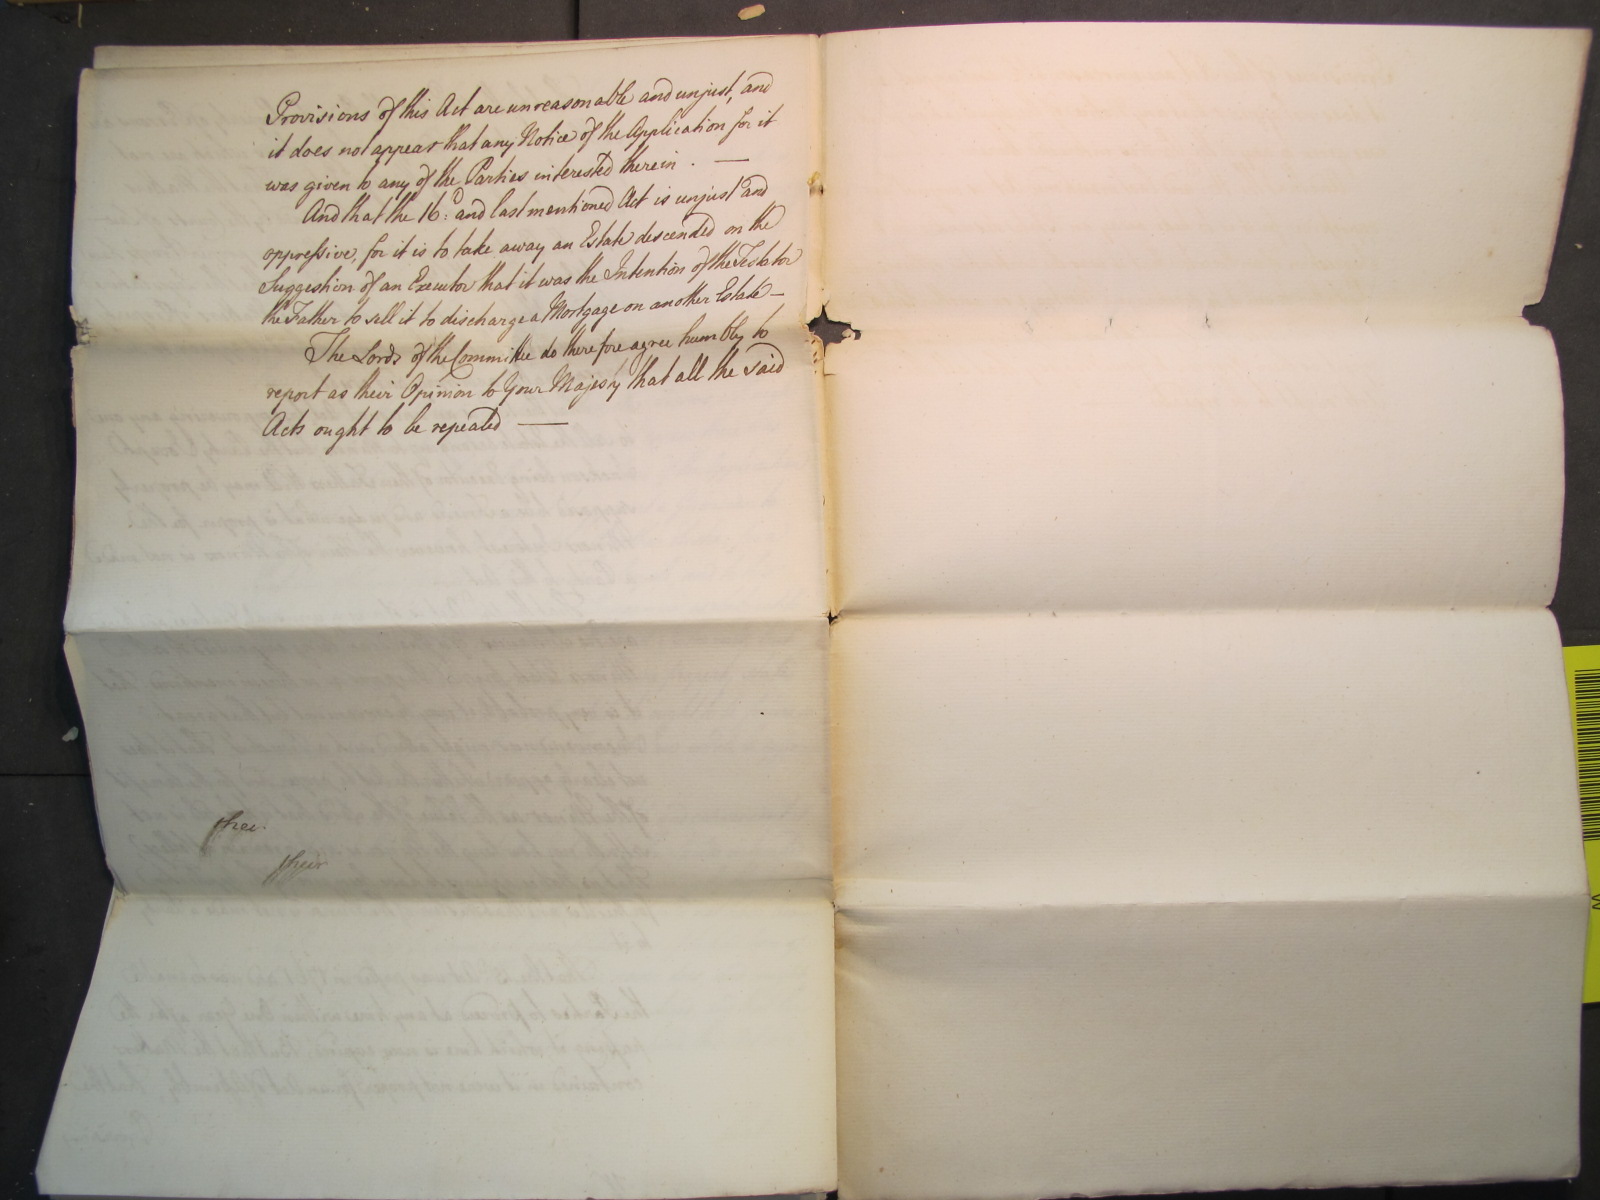 Provisions of this Act are unreasonable and unjust, and
it does not appear that any Notice of the Application for it
was given to any of the Parties interested therein . —
And that the 16: and last mentioned Act is unjust and
oppressive, for it is to take away an Estate descended on the
Suggestion of an Executor that it was the Intention of the Testator
the Father to sell it to discharge a Mortgage on another Estate —
The Lords of the Committee do therefore agree humbly to
report as their Opinion to Your Majesty that all the said
Acts ought to be repealed —
their